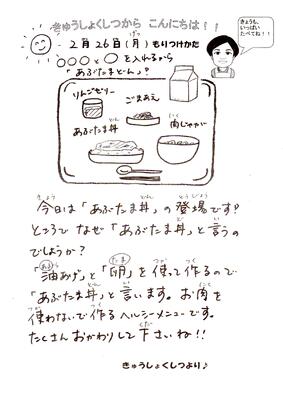 きゅうしょくしつから こんにちは!!
きょうも、
いっぱい
たべてね!!
2月26日(月) もりつけかた
○○○と○を入れるから
「あぶたまどん」?
りんごゼリー
ごまあえ
あぶたま丼
肉じゃが
今日は「あぶたま丼」の登場です!
ところでなぜ「あぶたま丼」と言うの
でしょうか?
「油あげ」と「卵」を使って作るので
「あぶたま丼」と言います。お肉を
使わないで作るヘルシーメニューです。
たくさんおかわりして下さいね!!
きゅうしょくしつより♪